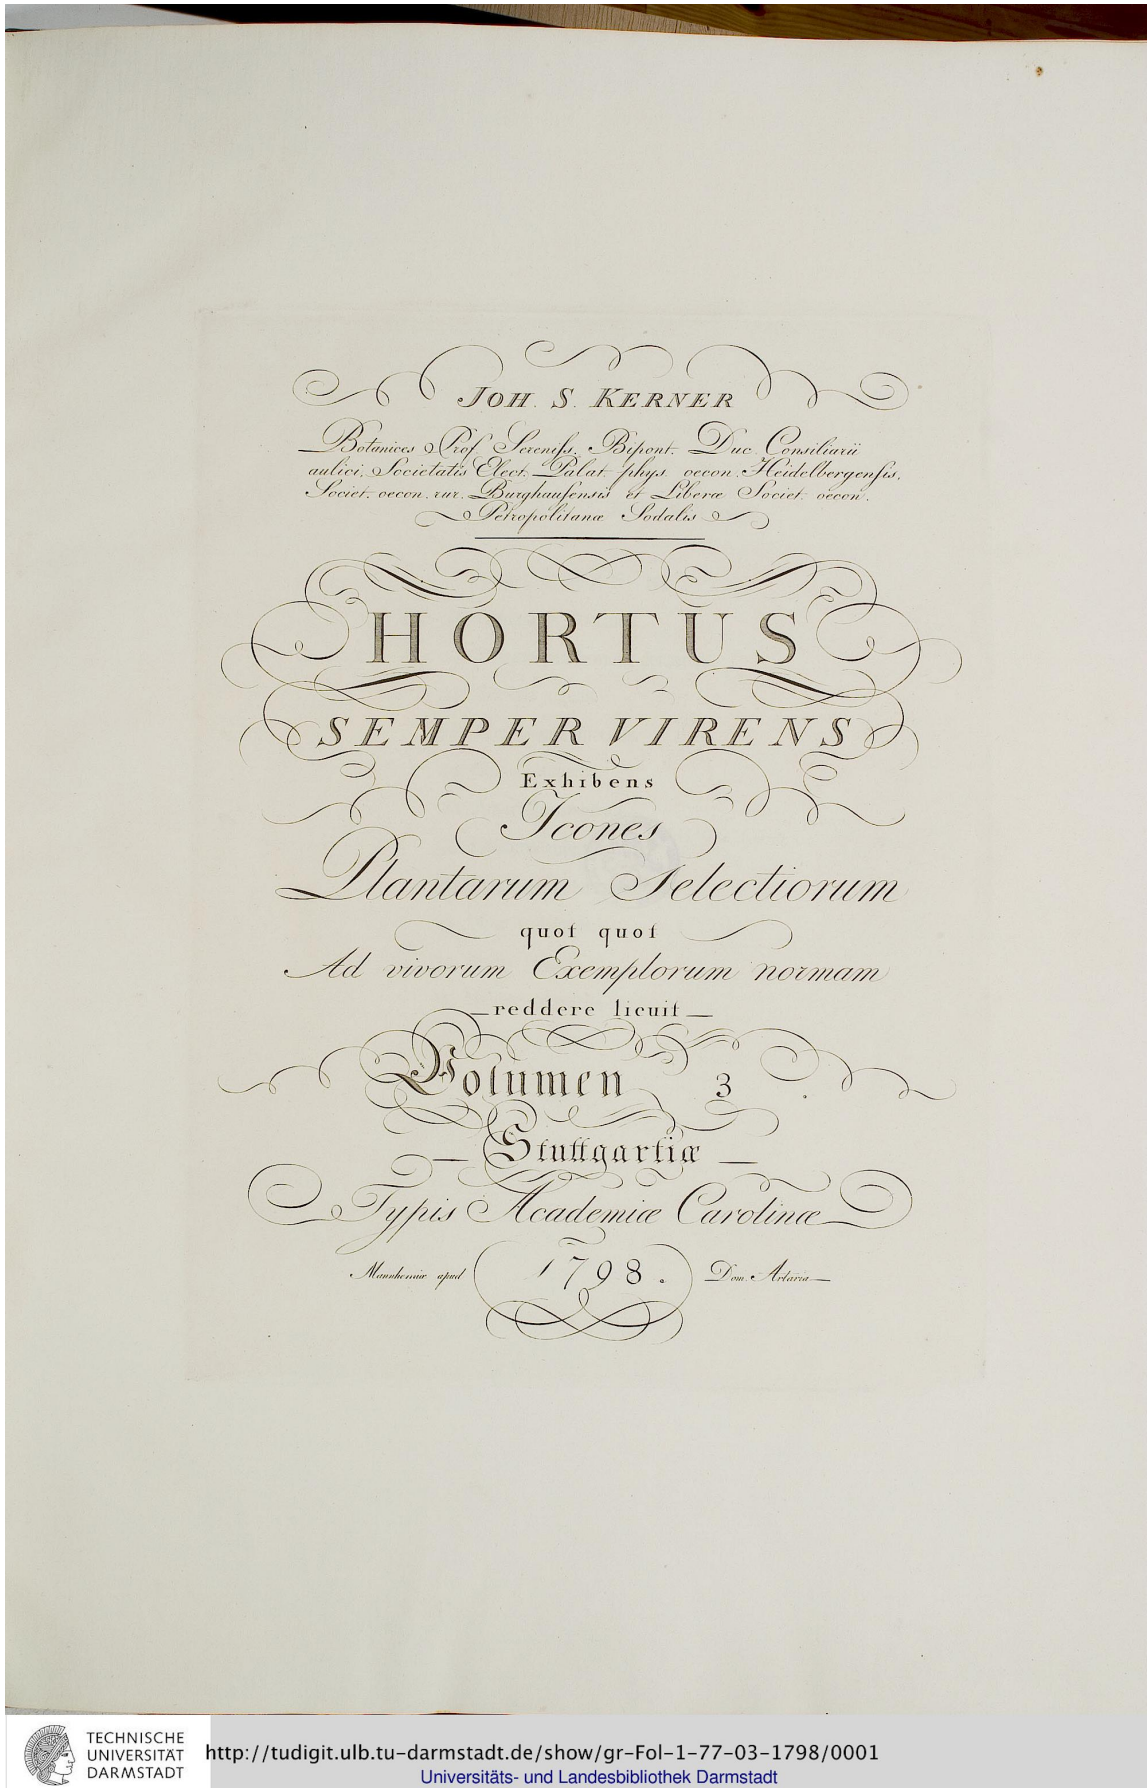 JOH. S. KERNER
Botanices Prof. Sereniſs. Bipont. Duc. Consiliarii
aulici, Societatis Elect. Palat. phys. oecon. Heidelbergenſis,
Societ. oecon. rur. Burghauſensis et Liberæ Societ. oecon.
Petropolitanæ Sodalis
HORTUS
SEMPER VIRENS
Exhibens
Icones
Plantarum Selectiorum
quot quot
Ad vivorum Exemplorum normam
reddere licuit
Volumen 3.
Stuttgartiæ
Typis Academiæ Carolinæ
Mannhemiæ apud 1798. Dom. Artaria
TECHNISCHE
UNIVERSITÄT
DARMSTADT
http://tudigit.ulb.tu-darmstadt.de/show/gr-Fol-1-77-03-1798/0001
Universitäts- und Landesbibliothek Darmstadt